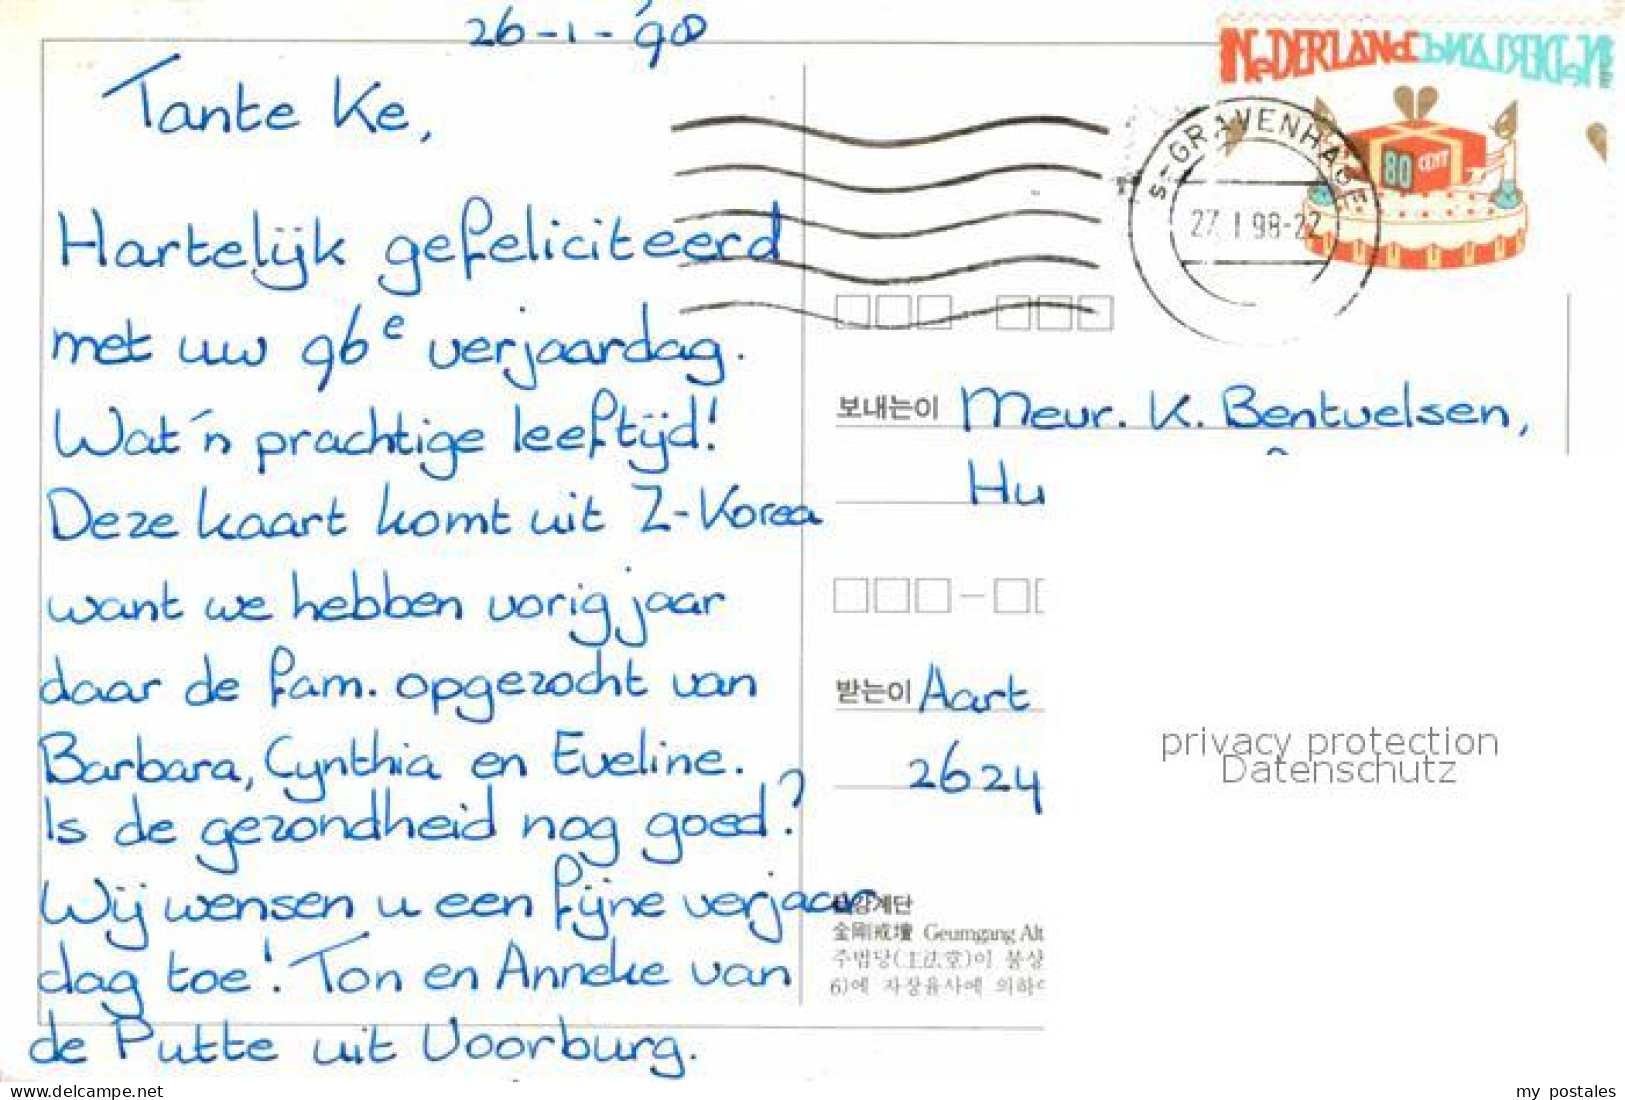 26-1-'98
Tante Ke,
Hartelijk gefeliciteerd
met uw 96e verjaardag.
Wat 'n prachtige leeftijd!
Deze kaart komt uit Z-Korea
want we hebben vorig jaar
daar de fam. opgezocht van
Barbara, Cynthia en Eveline.
Is de gezondheid nog goed?
Wij wensen u een fijne verjaar
dag toe! Ton en Anneke van
de Putte uit Voorburg.
NEDERLAND
80 CENT
S-GRAVENHAGE
27.1.98-22
보내는이 Meur. K. Bentvelsen,
Hu
받는이 Aart
2624
금강계단
金剛戒壇 Geumgang Alt
주법당(主法堂)이 불상
6)에 자장율사에 의하여
privacy protection
Datenschutz
delcampe.net
my postales